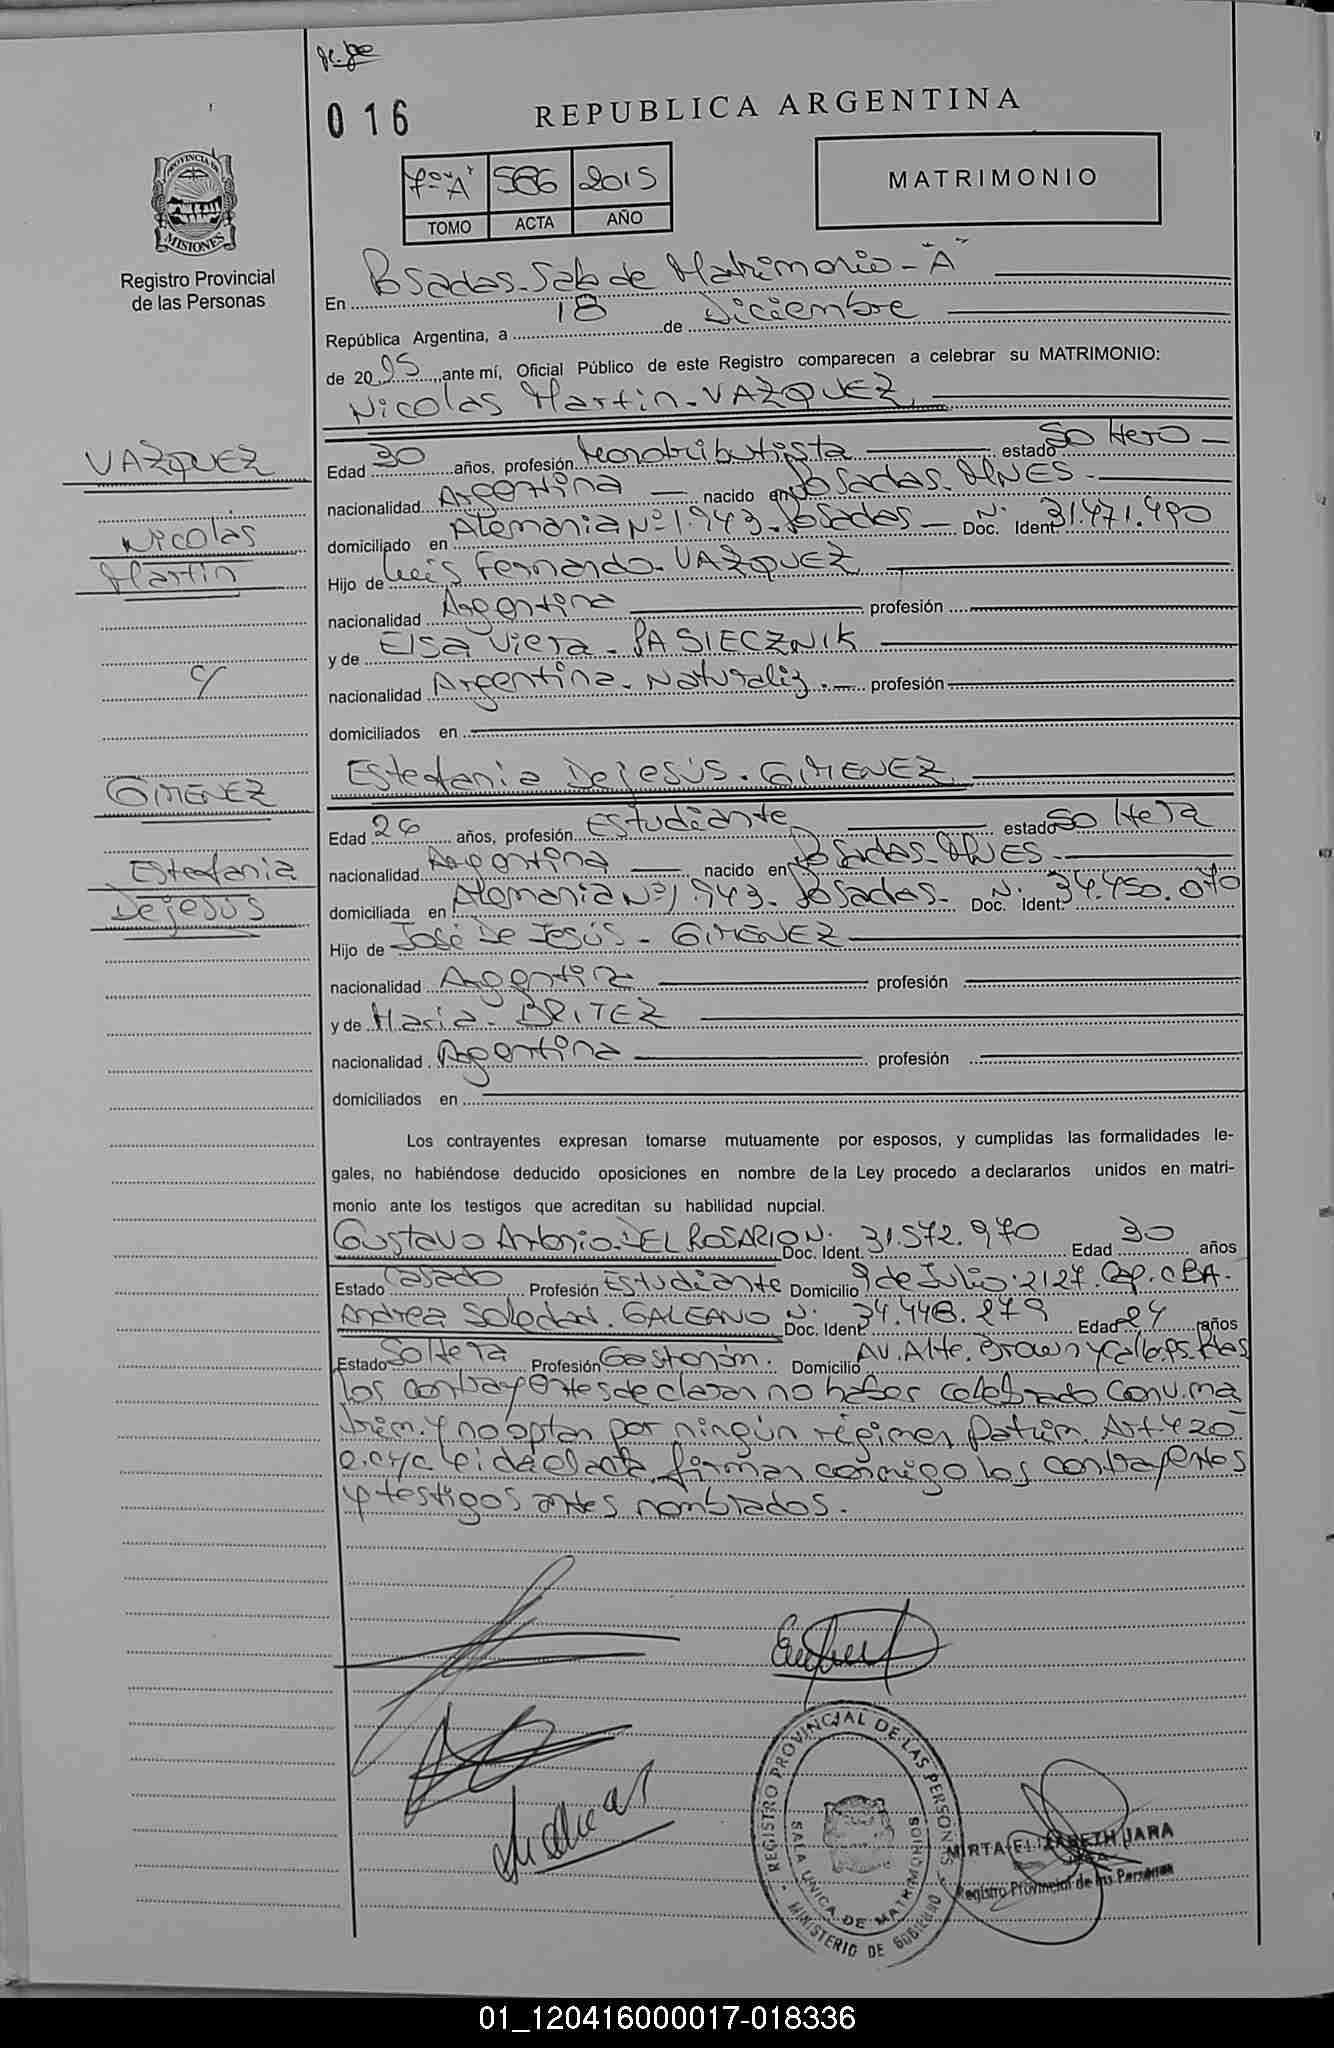 016
REPUBLICA ARGENTINA
PROVINCIA DE
MISIONES
Registro Provincial
de las Personas
7º "A" 586 2015
TOMO ACTA AÑO
MATRIMONIO
En Posadas-Sala de Matrimonio-"A"
República Argentina, a 18 de Diciembre
de 2015 ante mí, Oficial Público de este Registro comparecen a celebrar su MATRIMONIO:
Nicolas Martin-VAZQUEZ
VAZQUEZ
Nicolás
Martin
c/
GIMENEZ
Estefania
Dejesús
Edad 30 años, profesión Monotributista estado Soltero
nacionalidad Argentina nacido en Posadas-MNES-
domiciliado en Alemania Nº 1.943-Posadas- Doc. Ident. N: 31.471.490
Hijo de Luis Fernando-VAZQUEZ
nacionalidad Argentina profesión
y de Elsa Viera-PASIECZNIK
nacionalidad Argentina-Naturaliz.- profesión
domiciliados en
Estefania Dejesús-GIMENEZ
Edad 26 años, profesión Estudiante estado Soltera
nacionalidad Argentina nacido en Posadas-MNES-
domiciliada en Alemania Nº 1.943-Posadas- Doc. Ident. N: 34.450.070
Hijo de José De Jesús-GIMENEZ
nacionalidad Argentina profesión
y de Maria-BRITEZ
nacionalidad Argentina profesión
domiciliados en
Los contrayentes expresan tomarse mutuamente por esposos, y cumplidas las formalidades le-
gales, no habiéndose deducido oposiciones en nombre de la Ley procedo a declararlos unidos en matri-
monio ante los testigos que acreditan su habilidad nupcial.
Gustavo Antonio-DEL ROSARIO N: Doc. Ident. 31.572.970 Edad 30 años
Estado Casado Profesión Estudiante Domicilio 9 de Julio-2127-Cap. CBA.
Andrea Soledad-GALEANO N: Doc. Ident. 34.448.279 Edad 24 años
Estado Soltera Profesión Gastronóm. Domicilio Av. Alte. Brown y
Los contrayentes declaran no haber celebrado Conv. ma
trim. y no optan por ningún régimen Patrim. Art 420
leída el acta, firman conmigo los contrayentes
y testigos antes nombrados.
REGISTRO PROVINCIAL DE LAS PERSONAS
SALA UNICA DE MATRIMONIOS
MINISTERIO DE GOBIERNO
MIRTA ELIZABETH JARA
Registro Provincial de las Personas
01_120416000017-018336